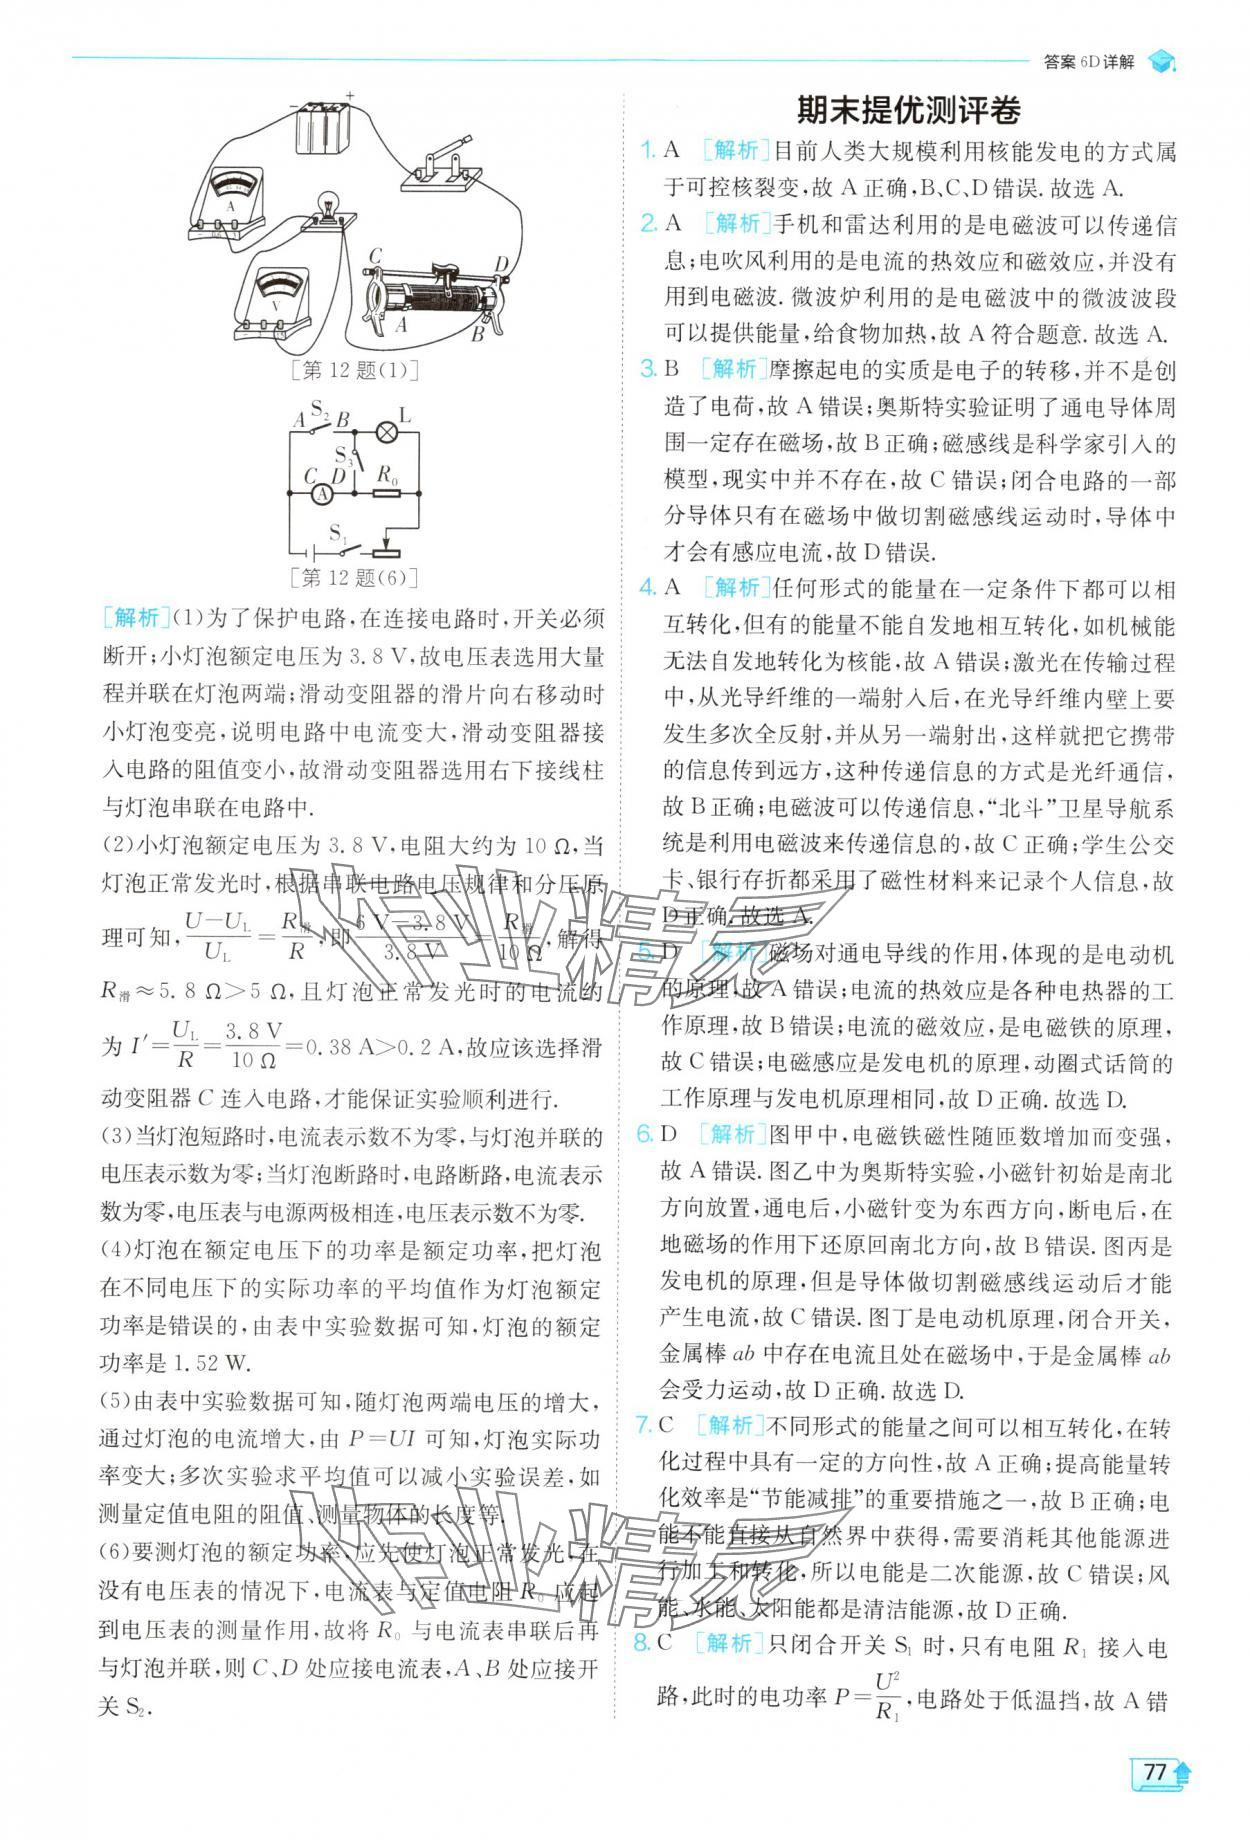 答案 6D详解
－ ＋
A
－ 0.6 3
V
C D
A B
[第 12 题(1)]
S₂ L
A B
S₃
C D R₀
A
S₁
[第 12 题(6)]
[解析](1)为了保护电路,在连接电路时,开关必须
断开;小灯泡额定电压为 3.8 V,故电压表选用大量
程并联在灯泡两端;滑动变阻器的滑片向右移动时
小灯泡变亮,说明电路中电流变大,滑动变阻器接
入电路的阻值变小,故滑动变阻器选用右下接线柱
与灯泡串联在电路中.
(2)小灯泡额定电压为 3.8 V,电阻大约为 10 Ω,当
灯泡正常发光时,根据串联电路电压规律和分压原
理可知,(U－U_L)/U_L＝R滑/R,即(6 V－3.8 V)/3.8 V＝R滑/10 Ω,解得
R滑≈5.8 Ω＞5 Ω,且灯泡正常发光时的电流约
为 I′＝U_L/R＝3.8 V/10 Ω＝0.38 A＞0.2 A,故应该选择滑
动变阻器 C 连入电路,才能保证实验顺利进行.
(3)当灯泡短路时,电流表示数不为零,与灯泡并联的
电压表示数为零;当灯泡断路时,电路断路,电流表示
数为零,电压表与电源两极相连,电压表示数不为零.
(4)灯泡在额定电压下的功率是额定功率,把灯泡
在不同电压下的实际功率的平均值作为灯泡额定
功率是错误的,由表中实验数据可知,灯泡的额定
功率是 1.52 W.
(5)由表中实验数据可知,随灯泡两端电压的增大,
通过灯泡的电流增大,由 P＝UI 可知,灯泡实际功
率变大;多次实验求平均值可以减小实验误差,如
测量定值电阻的阻值、测量物体的长度等.
(6)要测灯泡的额定功率,应先使灯泡正常发光,在
没有电压表的情况下,电流表与定值电阻 R₀ 应起
到电压表的测量作用,故将 R₀ 与电流表串联后再
与灯泡并联,则 C、D 处应接电流表,A、B 处应接开
关 S₂.
期末提优测评卷
1. A [解析]目前人类大规模利用核能发电的方式属
于可控核裂变,故 A 正确,B、C、D 错误. 故选 A.
2. A [解析]手机和雷达利用的是电磁波可以传递信
息;电吹风利用的是电流的热效应和磁效应,并没有
用到电磁波. 微波炉利用的是电磁波中的微波波段
可以提供能量,给食物加热,故 A 符合题意. 故选 A.
3. B [解析]摩擦起电的实质是电子的转移,并不是创
造了电荷,故 A 错误;奥斯特实验证明了通电导体周
围一定存在磁场,故 B 正确;磁感线是科学家引入的
模型,现实中并不存在,故 C 错误;闭合电路的一部
分导体只有在磁场中做切割磁感线运动时,导体中
才会有感应电流,故 D 错误.
4. A [解析]任何形式的能量在一定条件下都可以相
互转化,但有的能量不能自发地相互转化,如机械能
无法自发地转化为核能,故 A 错误;激光在传输过程
中,从光导纤维的一端射入后,在光导纤维内壁上要
发生多次全反射,并从另一端射出,这样就把它携带
的信息传到远方,这种传递信息的方式是光纤通信,
故 B 正确;电磁波可以传递信息,“北斗”卫星导航系
统是利用电磁波来传递信息的,故 C 正确;学生公交
卡、银行存折都采用了磁性材料来记录个人信息,故
D 正确. 故选 A.
5. D [解析]磁场对通电导线的作用,体现的是电动机
的原理,故 A 错误;电流的热效应是各种电热器的工
作原理,故 B 错误;电流的磁效应,是电磁铁的原理,
故 C 错误;电磁感应是发电机的原理,动圈式话筒的
工作原理与发电机原理相同,故 D 正确. 故选 D.
6. D [解析]图甲中,电磁铁磁性随匝数增加而变强,
故 A 错误. 图乙中为奥斯特实验,小磁针初始是南北
方向放置,通电后,小磁针变为东西方向,断电后,在
地磁场的作用下还原回南北方向,故 B 错误. 图丙是
发电机的原理,但是导体做切割磁感线运动后才能
产生电流,故 C 错误. 图丁是电动机原理,闭合开关,
金属棒 ab 中存在电流且处在磁场中,于是金属棒 ab
会受力运动,故 D 正确. 故选 D.
7. C [解析]不同形式的能量之间可以相互转化,在转
化过程中具有一定的方向性,故 A 正确;提高能量转
化效率是“节能减排”的重要措施之一,故 B 正确;电
能不能直接从自然界中获得,需要消耗其他能源进
行加工和转化,所以电能是二次能源,故 C 错误;风
能、水能、太阳能都是清洁能源,故 D 正确.
8. C [解析]只闭合开关 S₁ 时,只有电阻 R₁ 接入电
路,此时的电功率 P＝U²/R₁,电路处于低温挡,故 A 错
作业精灵
作业精灵
77